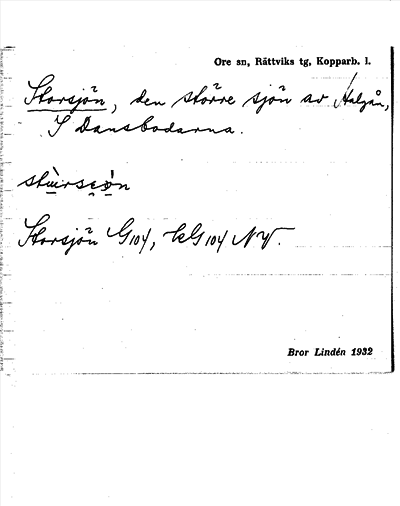 Ore sn, Rättviks tg, Kopparb. l.
Storsjön, den större sjön av
S Dansbodarna.
Storsjön G104, kG104 NV.
Bror Lindén 1932